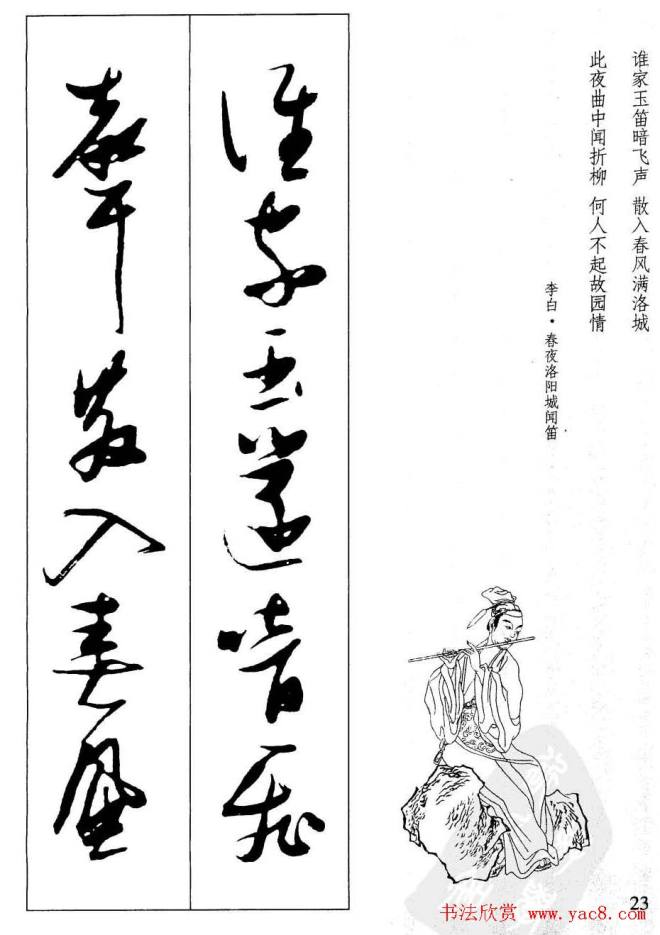 谁家玉笛暗飞声 散入春风满洛城
此夜曲中闻折柳 何人不起故园情
李白·春夜洛阳城闻笛
谁家玉笛暗飞
声散入春风
23
书法欣赏 www.yac8.com